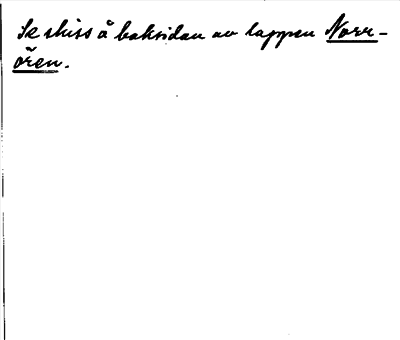 Se skiss å baksidan av lappen Norr-
ören.